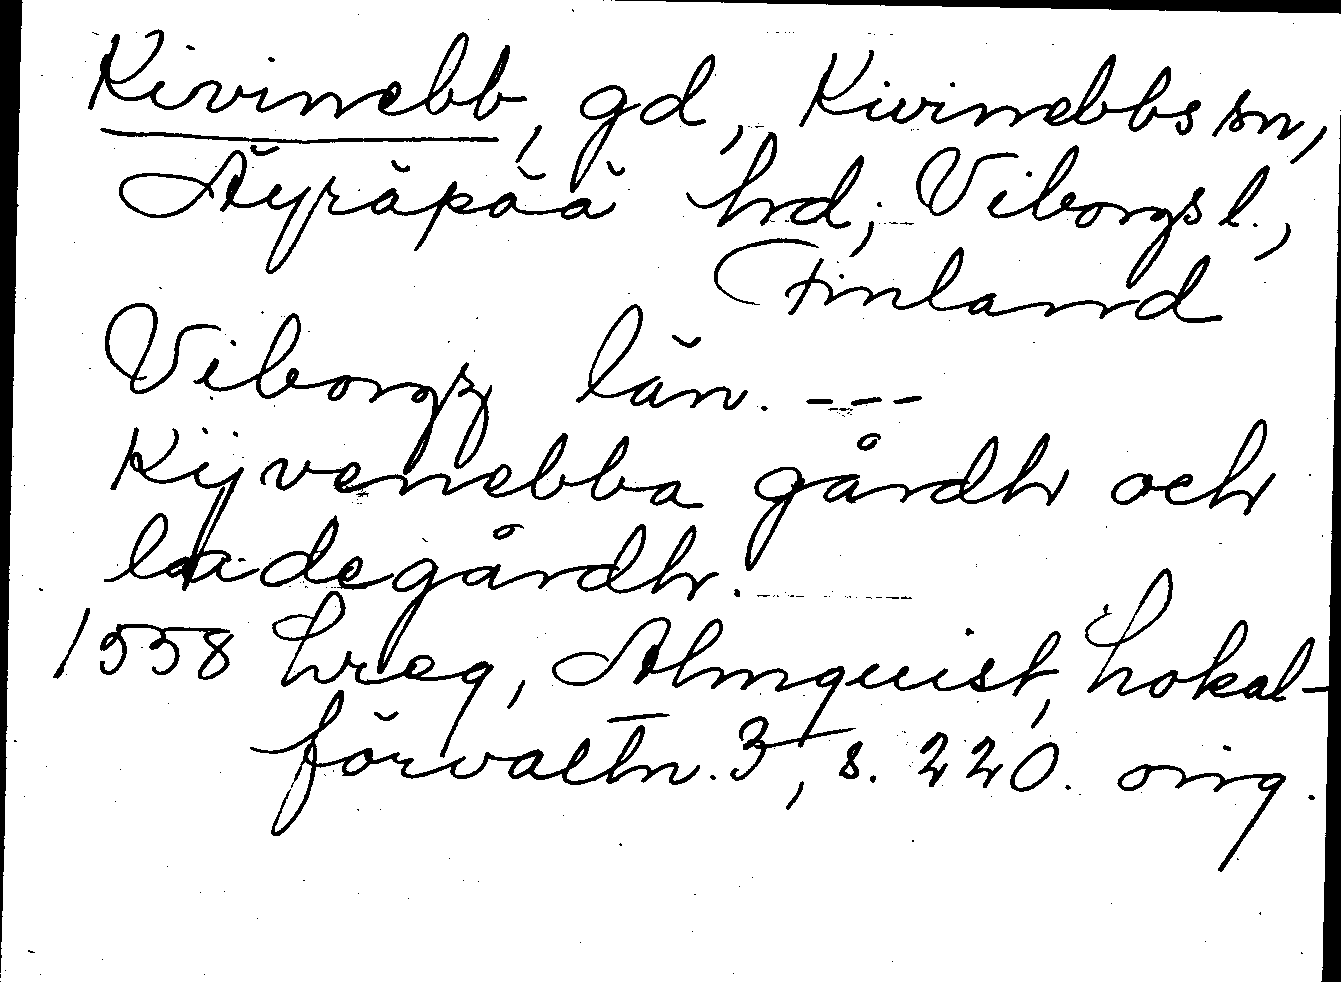 Kivinebb, gd, Kivinebbs sn,
Äyräpää hrd, Viborgs l.,
Finland
Viborgz län. ---
Kijvenebba gårdh och
ladegårdh.
1558 Lreg, Almquist, Lokal-
förvaltn. 3, s. 220. orig.